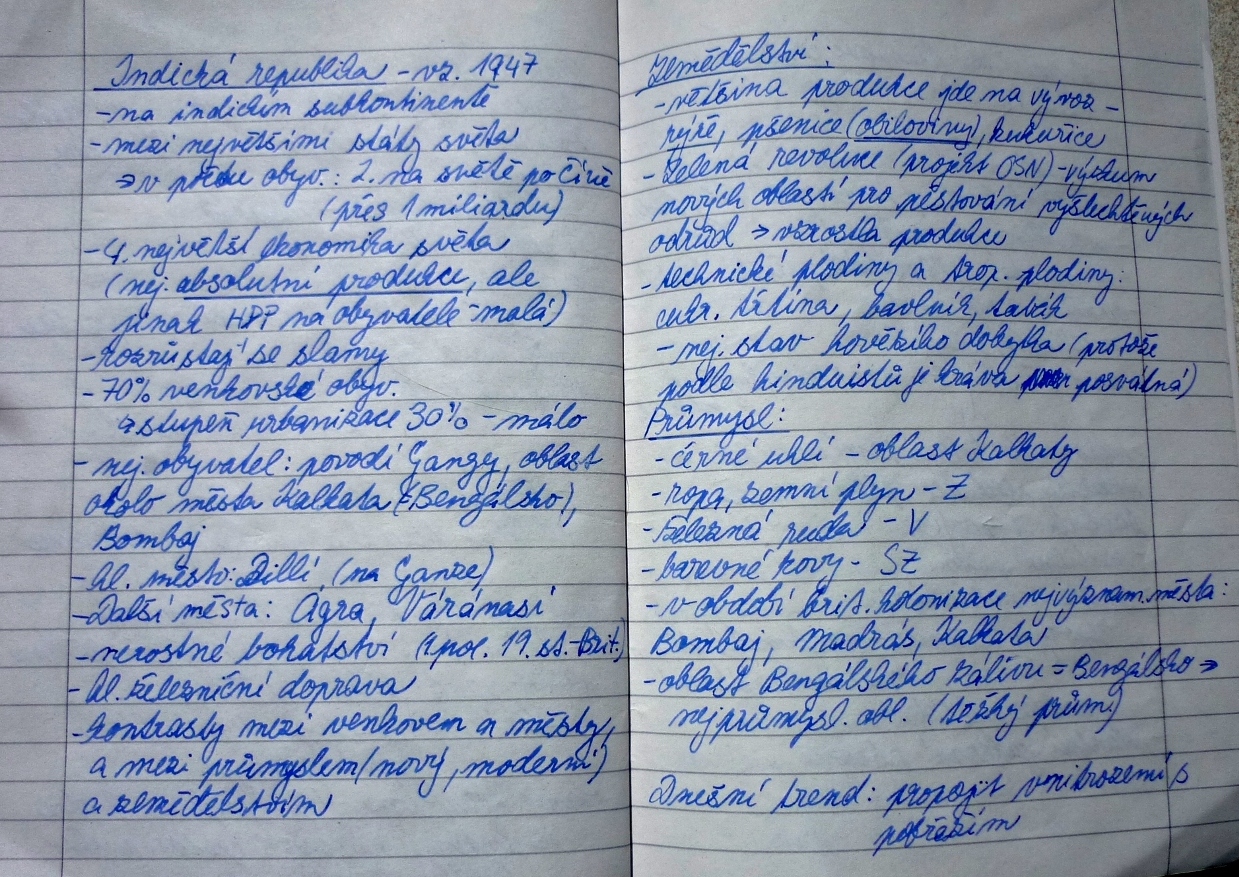 Indická republika - vz. 1947
- na indickém subkontinentě
- mezi největšími státy světa
→ v počtu obyv.: 2. na světě po Číně
(přes 1 miliardu)
- 4. největší ekonomika světa
(nej. absolutní produkce, ale
jinak HDP na obyvatele - malá)
- rozrůstají se slamy
- 70% venkovské obyv.
↳ stupeň urbanizace 30% - málo
- nej. obyvatel: povodí Gangy, oblast
okolo města Kalkata (=Bengálsko),
Bombaj
- hl. město: Dillí (na Ganze)
- Další města: Ágra, Váránasí
- nerostné bohatství (1 pol. 19. st. - Brit.)
- hl. železniční doprava
- kontrasty mezi venkovem a městy,
a mezi průmyslem (nový, moderní)
a zemědělstvím
Zemědělství:
- většina produkce jde na vývoz -
rýže, pšenice (obiloviny), kukuřice
- Zelená revoluce (projekt OSN) - výzkum
nových oblastí pro pěstování vyšlechtěných
odrůd → vzrostla produkce
- technické plodiny a trop. plodiny:
cukr. třtina, bavlník, tabák
- nej. stav hovězího dobytka (protože
podle hinduistů je kráva posvátná)
Průmysl:
- černé uhlí - oblast Kalkaty
- ropa, zemní plyn - Z
- železná ruda - V
- barevné kovy - SZ
- v období brit. kolonizace nejvýznam. města:
Bombaj, Madrás, Kalkata
- oblast Bengálského zálivu = Bengálsko →
nejprůmysl. obl. (těžký prům.)
Dnešní trend: propojit vnitrozemí s
pobřežím